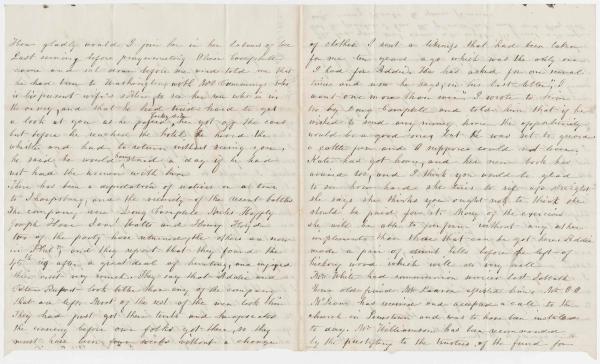 How gladly would I join her in her labours of love
Last evening before prayermeeting Oliver
came and sat down before me and told me that
he had been to Washington with Mrs Cummings who
is his present wife's sister, to see her who is in
the army, and that he had tried hard to get
a look at you as he passed, he got off the cars
but before he reached the hotel he heard the
whistle and had to return without seeing you,
he said he would have staid a day if he had
not had the women with him
There has been a deputation of natives on a tour
to Sharpsburg, and the vicinity of the recent battles
The company were Doug Campbell
Joseph Watts and Henry Floyd
two of the party have returned, the others are now
in and they report that they found the
after a great deal of hunting, and enjoyed
their visit very much. They say that Eddie and
look better than any of the company
that are left. Most of the rest of the men look thin
They had just got their tents and knapsacks
the evening before our folks got there, so they
must have been weeks without a change
of clothes I sent a likeness that had been taken
for me ten years ago which was the only one
I had for Eddie. He has asked for one several
times and now he says, in his last letter, I
want one more than ever. I wrote to him
by Doug Campbell and told him that if he
wished to send any money home the opportunity
would be a good one, but he was set to guard
a cattle pen and I suppose could not leave,
Kate has got home, and her new book has
arrived too, and I think you would be glad
to see how hard she tries to sit up straight
she says she thinks you ought not to think she
should be paid for it. Many of the exercises
she will be able to perform without any other
implements than those that can be got here. Eddie
made a pair of dumb bells before he left of
hickory wood which will do very nicely
Mr White had communion services last Sabbath
Your old friend Mr assisted him. Mr
has received and accepted a call to the
church in and was to have been installed
to day. Mr Williamson has been recommended
by the presbytery to the trustees of the fund for